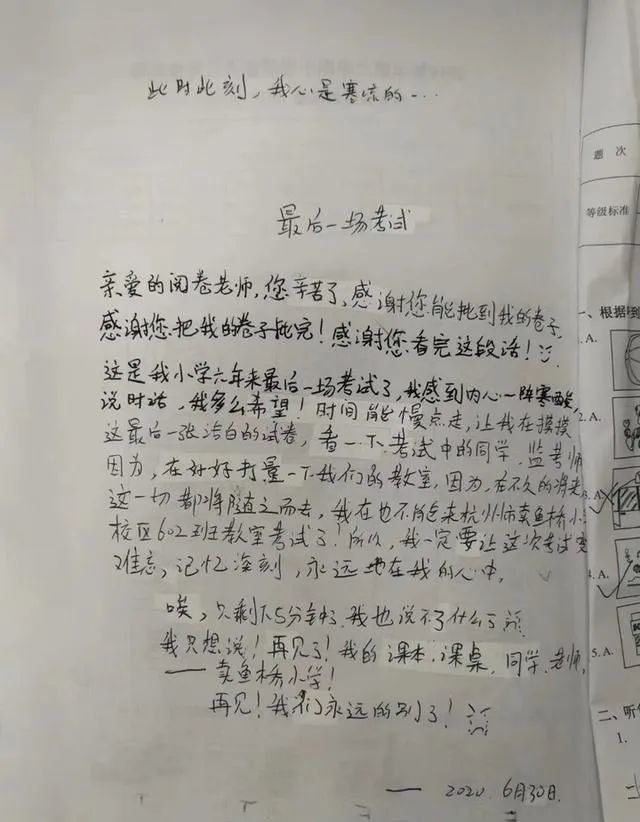 此时此刻，我心是寒凉的…
最后一场考试
亲爱的阅卷老师，您辛苦了，感谢您能批到我的卷子，
感谢您把我的卷子批完！感谢您看完这段话！
这是我小学六年来最后一场考试了，我感到内心一阵寒酸，
说时话，我多么希望！时间能慢点走，让我在摸摸
这最后一张洁白的试卷，看一下考试中的同学、监考师
因为，在好好打量一下我们的教室，因为，在不久的将来
这一切都将随之而去，我在也不能来杭州市卖鱼桥小
校区602班教室考试了！所以，我一定要让这次考试变
难忘，记忆深刻，永远地在我的心中。
唉，只剩下5分钟了，我也说不了什么了
我只想说！再见了！我的课本、课桌，同学、老师，
——卖鱼桥小学！
再见！我们永远的别了！
—— 2020. 6月30日.
题 次
等级标准
一、根据
1.A.
2.A.
3.A.
4.A.
5.A.
二、听
1.